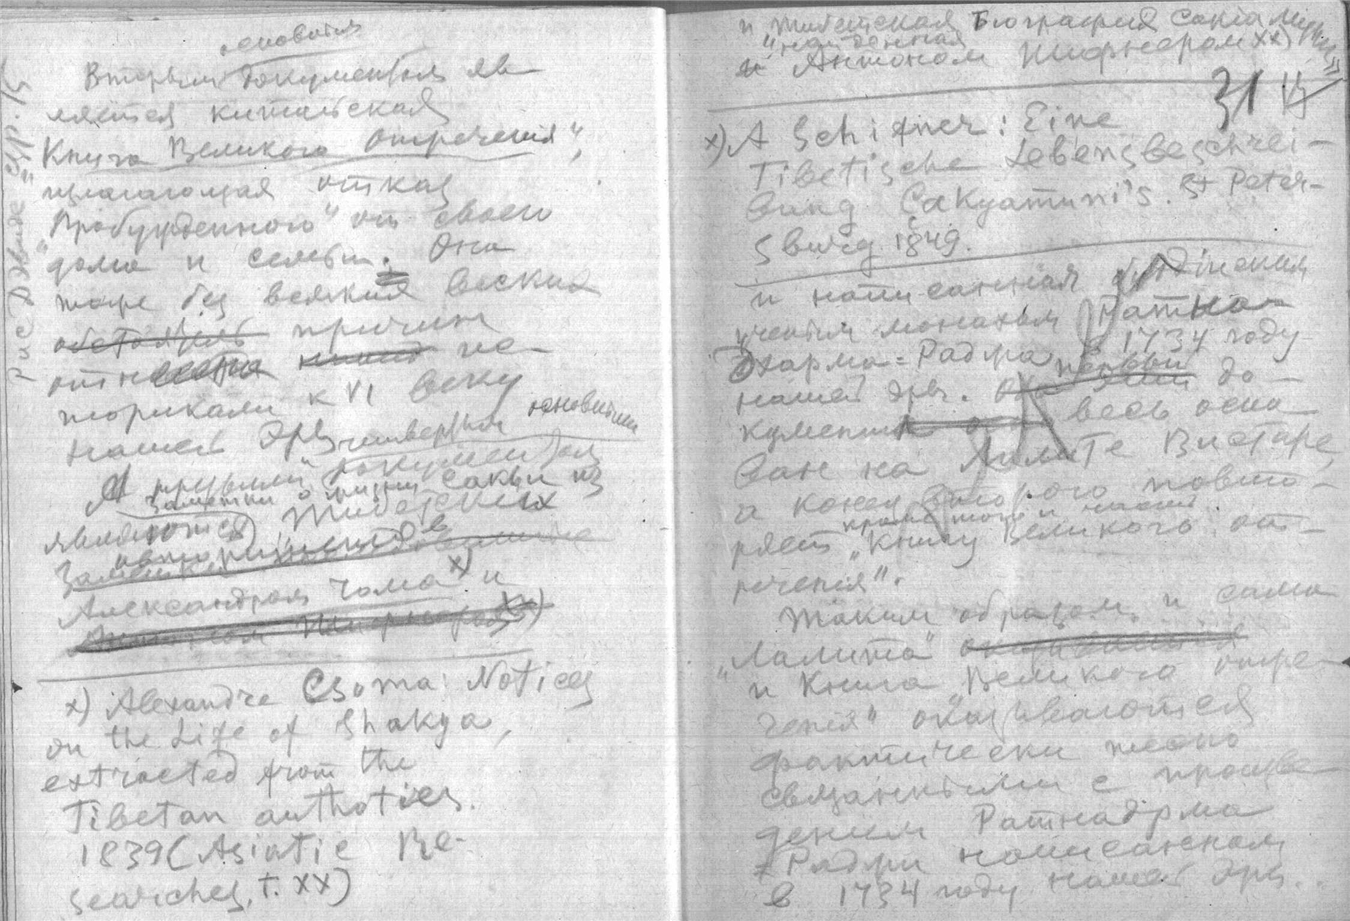 основным
Вторым документом яв-
ляется китайская
Книга Великого Отречения",
излагающая отказ
"Пробужденного" от своего
дома и семьи. Она
тоже без всяких веских
причин
отнесена ис-
ториками к VI веку
нашей Эры
основным
А третьим документом
Заметки о жизни Сакьи из
являются Тибетских
Александром Чома x) и
x) Alexandre Csoma: Notices
on the Life of Shakya,
extracted from the
Tibetan authoties.
1839 (Asiatic Re-
searches, т. XX)
и Тибетская Биография Сакіа Муни"
найденная
Антоном Шифнером xx)
31
x) A Schifner: Eine
Tibetische Lebensbeschrei-
bung Çakyamuni's. St Peter-
sburg 1849.
и написанная буддійским
ученым монахом Ратна-
Дхарма=Радма в 1734 году
нашей эры. первый до-
кумент весь осно-
ван на Лалите Вистаре,
а конец второго повто-
ряет "Книгу Великого от-
речения".
Таким образом и сама
"Лалита"
и Книга Великого отре-
чения" оказываются
фактически тесно
связанными с произве-
дением Ратнадрма
Радри написанном
в 1734 году нашей эры.